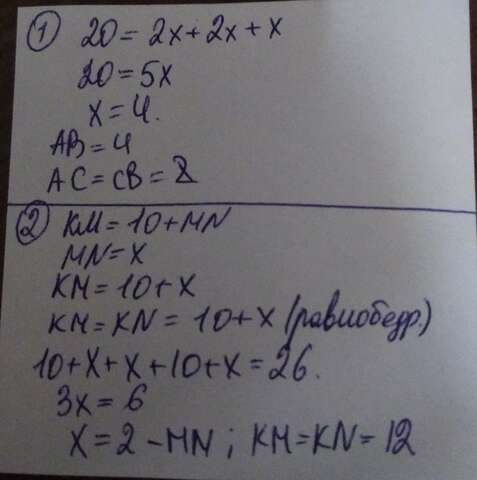 ① 20 = 2x + 2x + x
20 = 5x
x = 4.
AB = 4
AC = CB = 8
② KM = 10 + MN
MN = x
KM = 10 + x
KM = KN = 10 + x (равнобедр.)
10 + x + x + 10 + x = 26.
3x = 6
x = 2 - MN ; KM = KN = 12